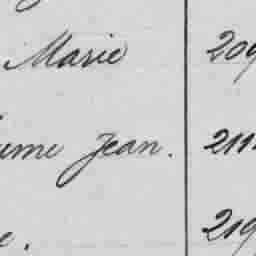 Marie 209
ume Jean. 211
e. 219